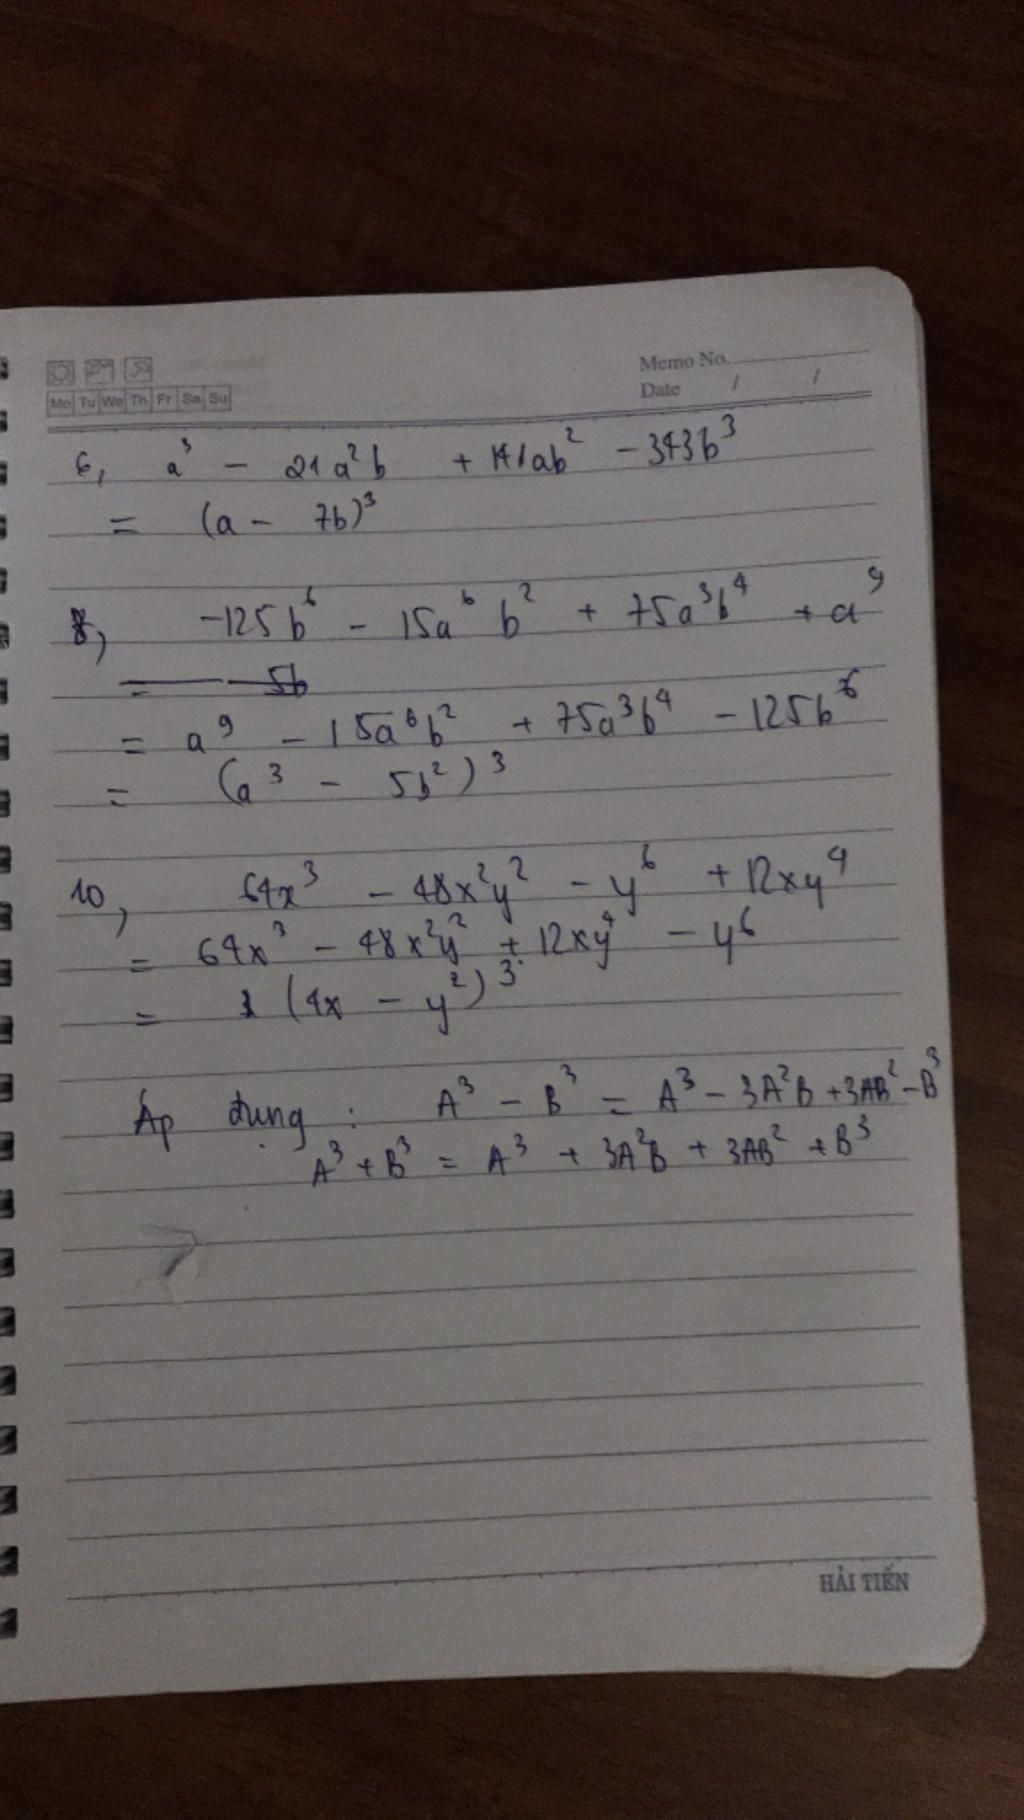 Memo No.
Mo Tu We Th Fr Sa Su
Date / /
6, a³ - 21a²b + 141ab² - 343b³
= (a - 7b)³
8, -125b⁶ - 15a⁶b² + 75a³b⁴ + a⁹
= a⁹ - 15a⁶b² + 75a³b⁴ - 125b⁶
= (a³ - 5b²)³
10, 64x³ - 48x²y² - y⁶ + 12xy⁴
= 64x³ - 48x²y² + 12xy⁴ - y⁶
= (4x - y²)³
Áp dụng : A³ - B³ = A³ - 3A²B + 3AB² - B³
A³ + B³ = A³ + 3A²B + 3AB² + B³
HẢI TIẾN